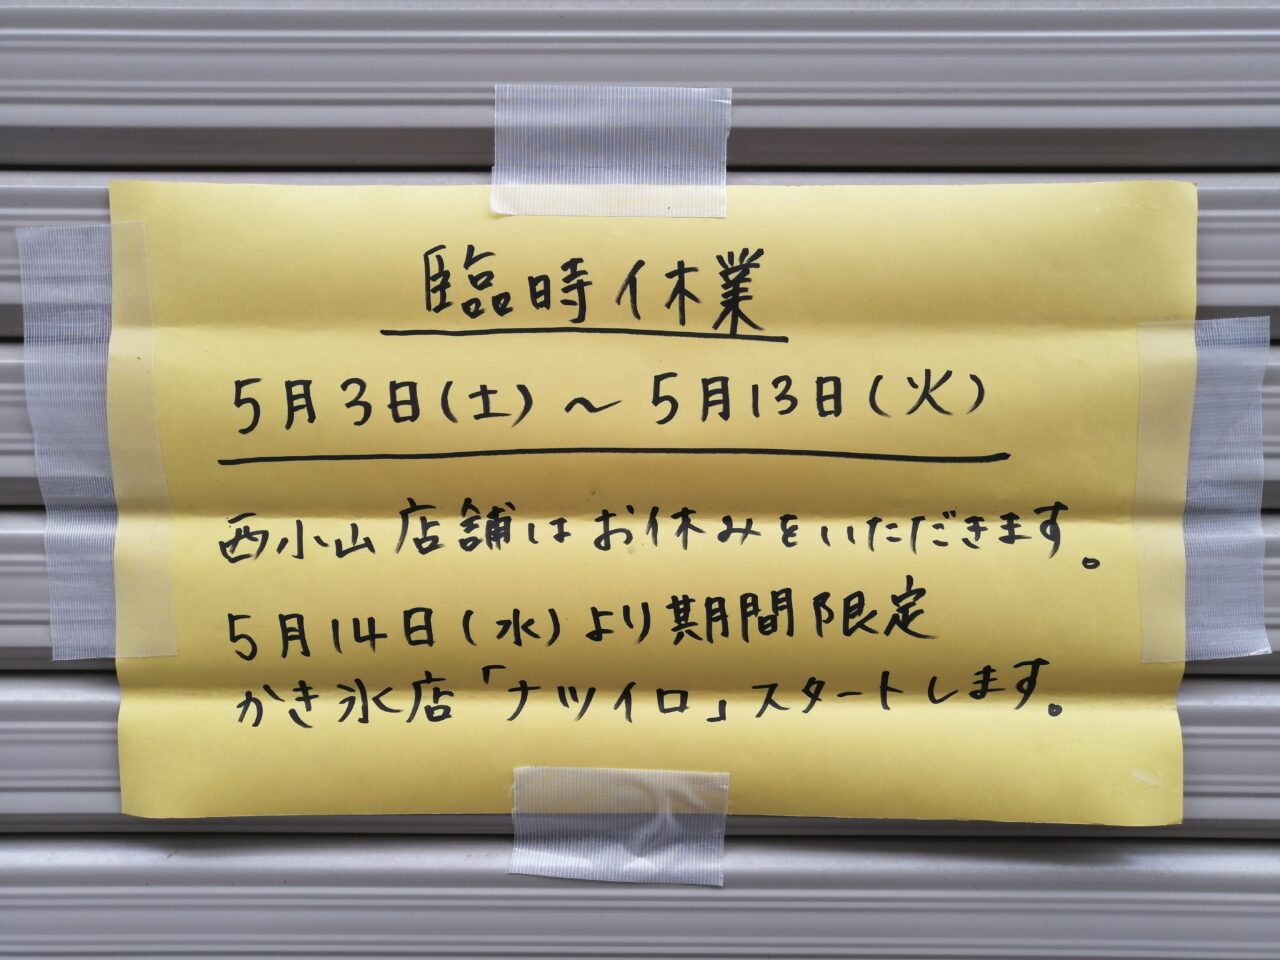 臨時休業
5月3日(土)～5月13日(火)
西小山店舗はお休みをいただきます。
5月14日(水)より期間限定
かき氷店「ナツイロ」スタートします。